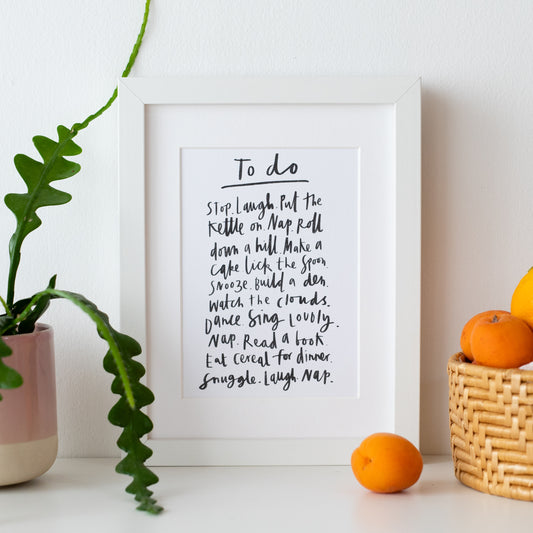 To do
Stop. Laugh. Put the
Kettle on. Nap. Roll
down a hill. Make a
cake lick the spoon
Snooze. Build a den.
Watch the clouds.
Dance Sing Loudly.
Nap. Read a book
Eat cereal for dinner.
Snuggle. Laugh. Nap.